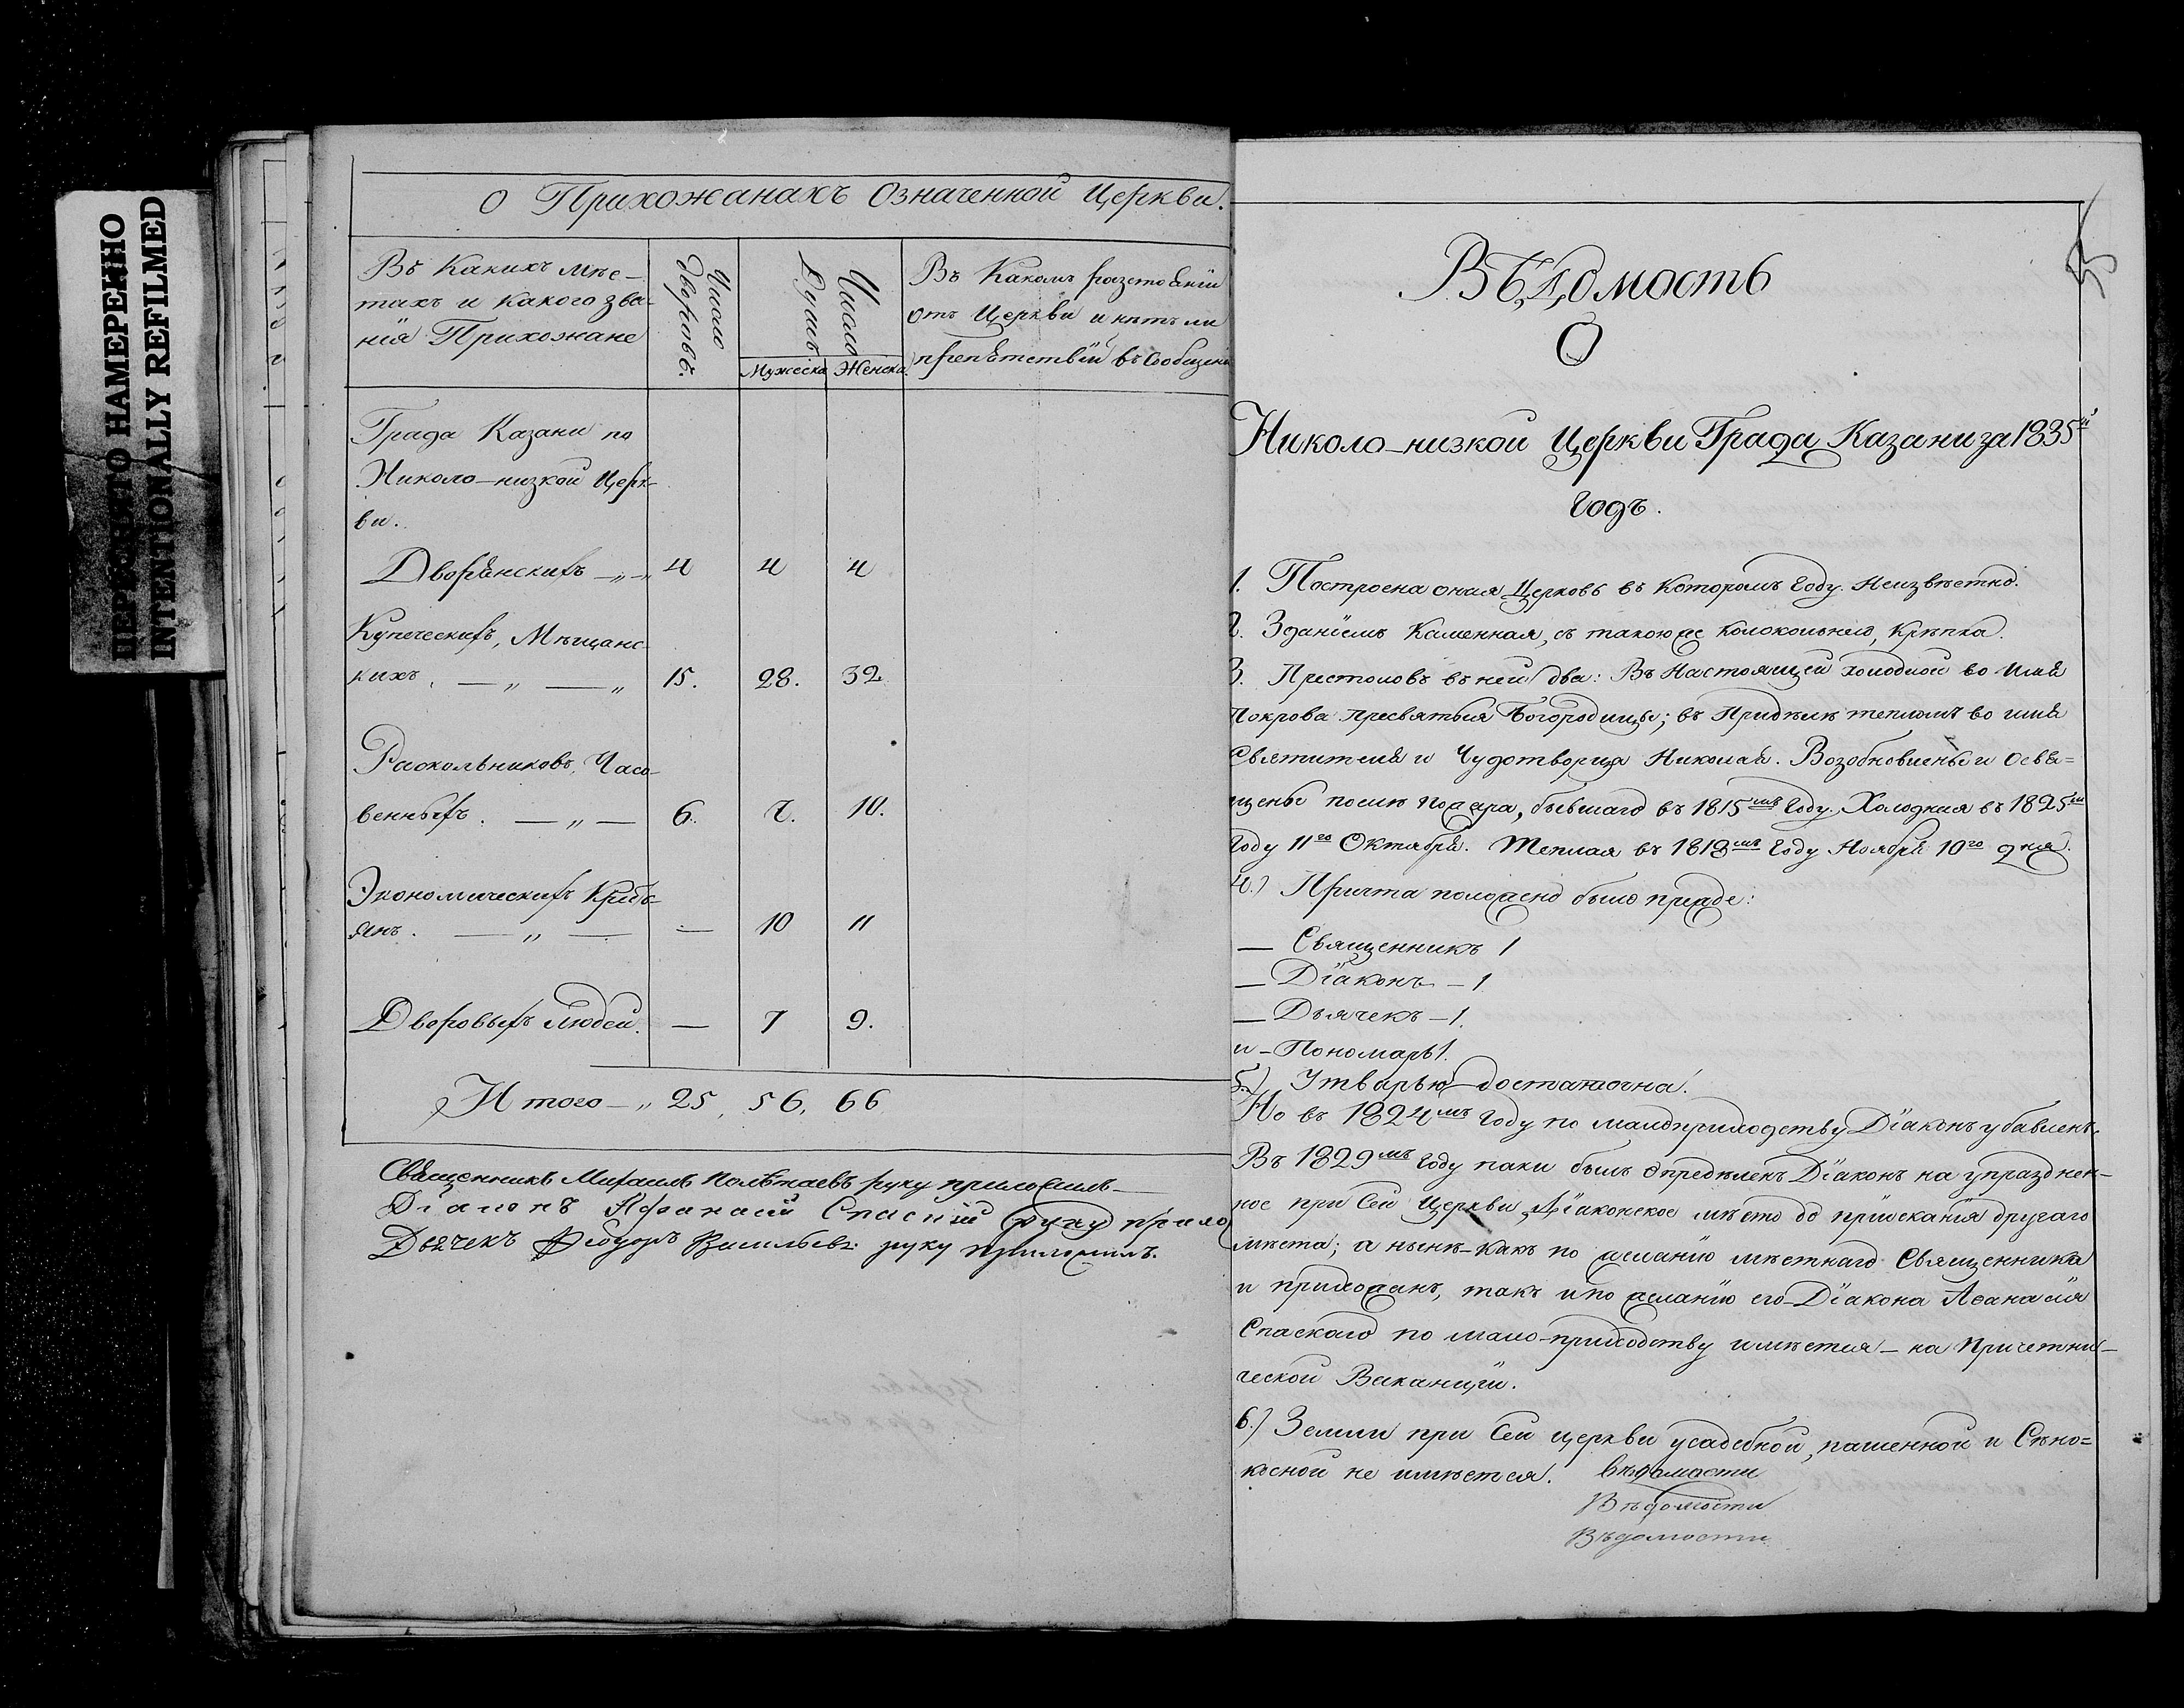 ПЕРЕСНЯТО НАМЕРЕННО
INTENTIONALLY REFILMED
О Прихожанахъ Означенной Церкви.
Въ Какихъ мѣс-
тахъ и какого зва-
нія Прихожане
Число
дворовъ.
Число
Душъ
Мужеска
Женска.
Въ Какомъ разстояніи
отъ Церкви и нѣтъ ли
препятствій въ Сообщеніи
Града Казани по
Николо-низкой Церк-
ви.
Дворянскихъ —„— 4 4 4
Купеческихъ, Мѣщанс-
кихъ. — „ — „ 15. 28. 32
Раскольниковъ, Часо-
венныхъ. — „ — 6. 7. 10.
Экономическихъ Кресть-
янъ. — „ — — 10 11
Дворовыхъ людей. — 7 9.
Итого —„ 25, 56, 66
Священникъ Михаилъ Полѣтаевъ руку приложилъ
Діаконъ Афанасій Спаскій руку прило
Дьячекъ Феодоръ Васильевъ руку приложилъ.
Вѣдомость
О
Николо-низкой Церкви Града Казани за 1835й
годъ.
1. Построена оная Церковь въ Которомъ Году. Неизвѣстно.
2. Зданіемъ Каменная, съ такою же Колокольнею, Крѣпка.
3. Престоловъ въ ней два: Въ Настоящей холодной во Имя
Покрова пресвятыя Богородицы; въ Придѣлѣ тепломъ во имя
Святителя и Чудотворца Николая. Возобновлены и Освя=
щены послѣ пожара, бывшаго въ 1815мъ Году. Холодная въ 1825м
Году 11го Октября. Теплая въ 1818мъ Году Ноября 10го дня.
4.) Причта положено было прежде:
— Священникъ 1
— Діаконъ — 1
— Дьячекъ — 1.
и — Пономарь 1.
5.) Утварью достаточна.
Но въ 1824мъ Году по малоприходству Діаконъ убавленъ.
Въ 1829мъ Году паки былъ опредѣленъ Діаконъ на упразднен-
ное при Сей Церкви Діаконское мѣсто до пріисканія другаго
мѣста; а нынѣ-какъ по желанію мѣстнаго Священника
и прихожанъ, такъ и по желанію его Діакона Аѳанасія
Спаскаго по мало-приходству имѣется — на Причетни-
ческой Ваканціи.
6.) Земли при Сей церкви усадебной, пашенной и Сѣно=
косной не имѣется. Вѣдомости
Вѣдомости
Вѣдомости